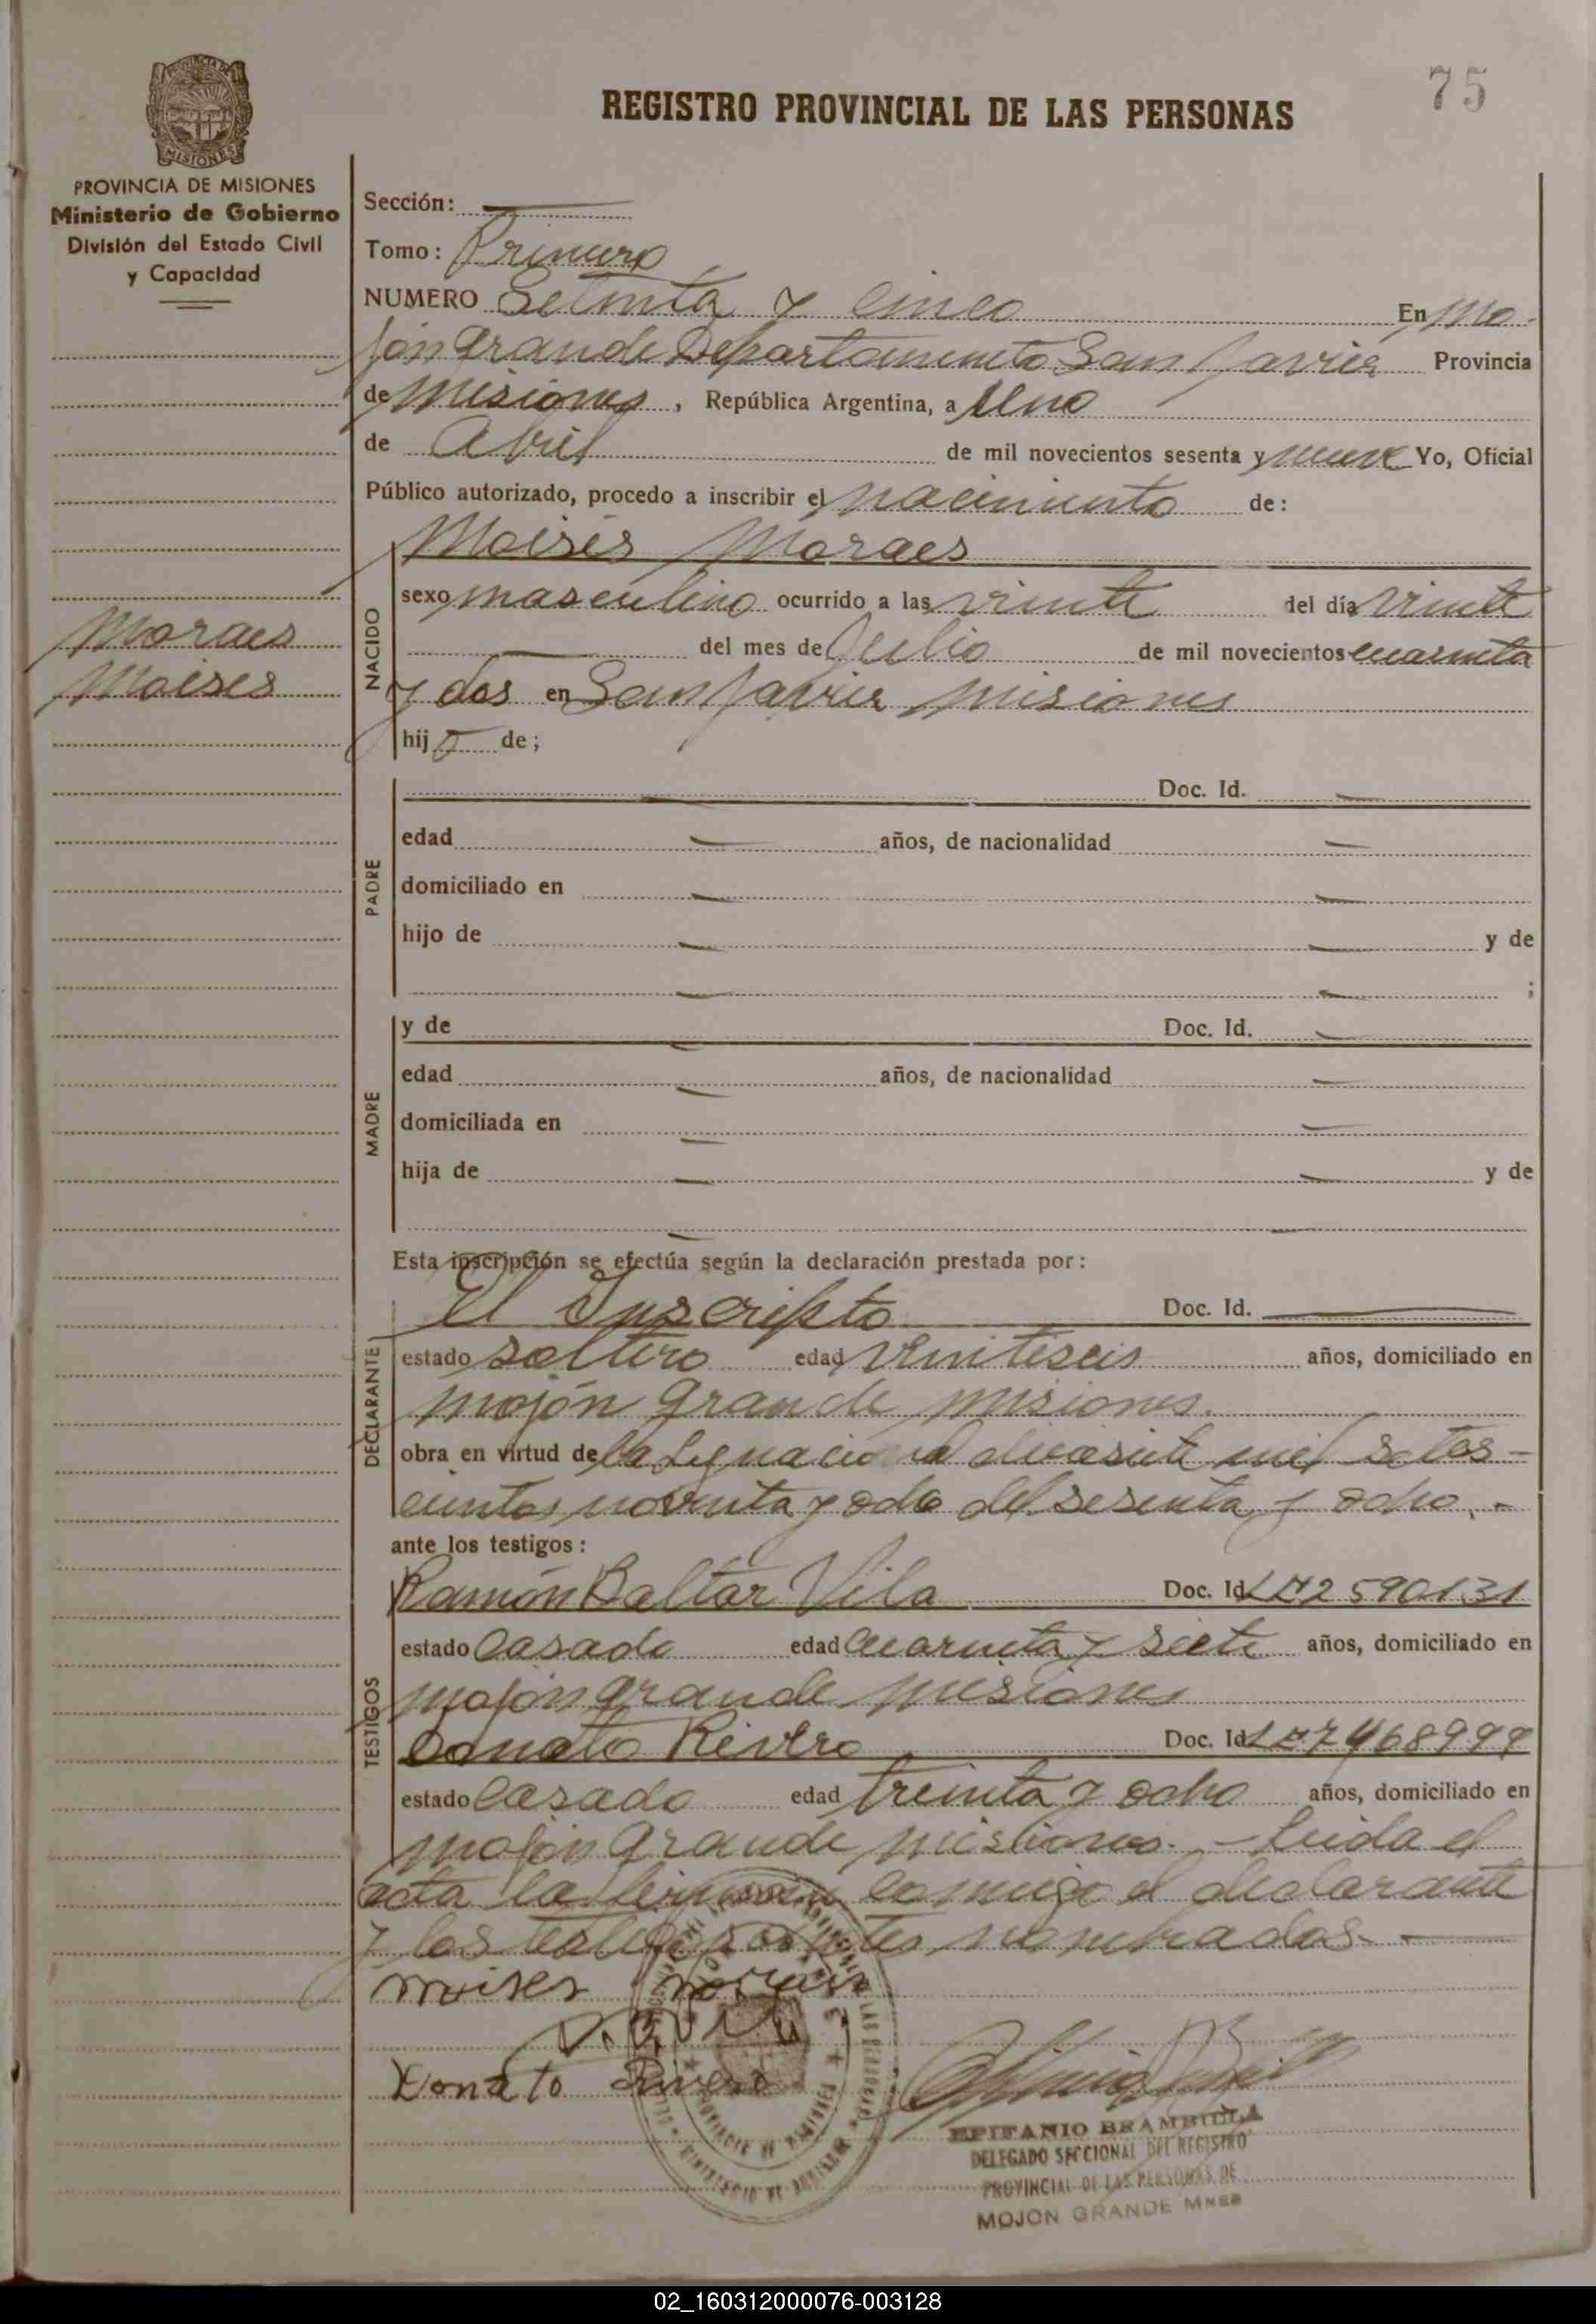 75
REGISTRO PROVINCIAL DE LAS PERSONAS
MISIONES
PROVINCIA DE MISIONES
Ministerio de Gobierno
División del Estado Civil
y Capacidad
Moraes
Moises
Sección:
Tomo: Primero
NUMERO Setenta y cinco En Mo-
jón Grande Departamento San Javier Provincia
de Misiones, República Argentina, a Uno
de Abril de mil novecientos sesenta y nueve Yo, Oficial
Público autorizado, procedo a inscribir el nacimiento de:
Moisés Moraes
NACIDO
sexo masculino ocurrido a las veinte del día veinte
del mes de Julio de mil novecientos cuarenta
y dos en San Javier Misiones
hijo de;
PADRE
Doc. Id.
edad años, de nacionalidad
domiciliado en
hijo de y de
;
MADRE
y de Doc. Id.
edad años, de nacionalidad
domiciliada en
hija de y de
Esta inscripción se efectúa según la declaración prestada por:
DECLARANTE
El Inscripto Doc. Id.
estado soltero edad veintiseis años, domiciliado en
Mojón Grande Misiones.
obra en virtud de la Ley nacional diecisiete mil setes-
cientos noventa y ocho del sesenta y ocho.-
ante los testigos:
TESTIGOS
Ramón Baltar Vila Doc. Id. LE 2590131
estado casado edad cuarenta y siete años, domiciliado en
Mojón Grande Misiones
Donato Rivero Doc. Id. LE 7468999
estado casado edad treinta y ocho años, domiciliado en
Mojón Grande Misiones.- Leida el
acta la firman conmigo el declarante
y los testigos antes nombrados.-
moises moraes
Donato Rivero
EPIFANIO BRAMBILLA
DELEGADO SECCIONAL DEL REGISTRO
PROVINCIAL DE LAS PERSONAS DE
MOJON GRANDE MNES
02_160312000076-003128